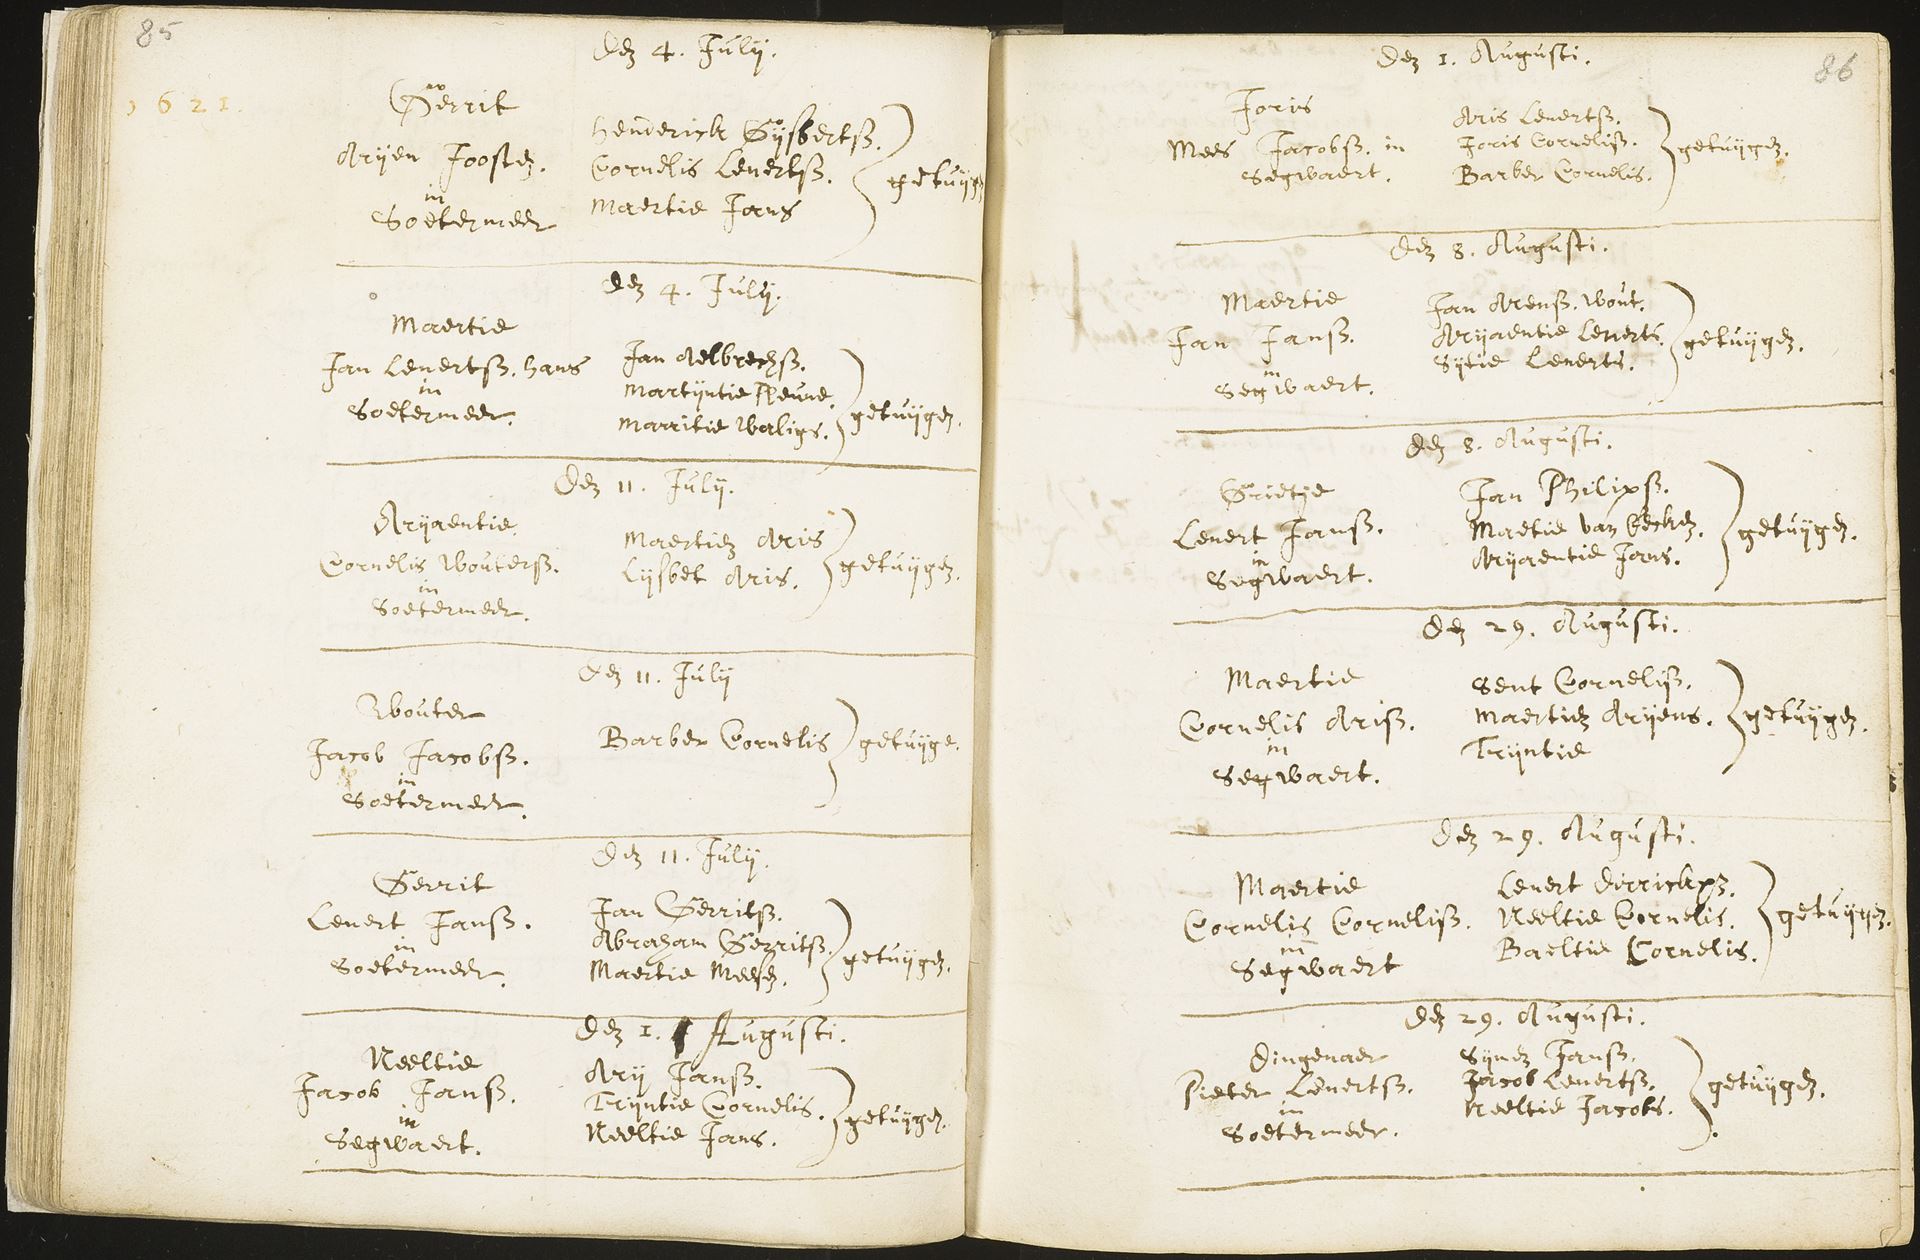 85
1621.
Dez 4. July.
Gerrit
Arijen Joostez.
in
Soetermeer
Henderick Gijsbertß.
Cornelis Lenertß.
Maertie Jans
getuijgez
Dez 4. July.
Maertie
Jan Lenertß. Hans
in
Soetermeer.
Jan Aelbrechß.
Martijntie
Marritie Waligs.
getuijgez.
Dez 11. July.
Arijaentie
Cornelis Wouterß.
in
Soetermeer.
Maertiez Aris
Lijsbet Aris.
getuijgez.
Dez 11. July
Wouter
Jacob Jacobß.
in
Soetermeer.
Barber Cornelis
getuijge.
Dez 11. July.
Gerrit
Lenert Janß.
in
Soetermeer.
Jan Gerritß.
Abraham Gerritß.
Maertie Meesez.
getuijgez.
Dez 1. Augusti.
Neeltie
Jacob Janß.
in
Segwaert.
Arij Janß.
Trijntie Cornelis.
Neeltie Jans.
getuijgez.
86
Dez 1. Augusti.
Joris
Mees Jacobß. in
Segwaert.
Aris Lenertß.
Joris Corneliß.
Barber Cornelis.
getuijgez.
Dez 8. Augusti.
Maertie
Jan Janß.
in
Segwaert.
Jan Arenß. Wout.
Arijaentie Lenerts.
Sijtie Lenerts.
getuijgez.
Dez 8. Augusti.
Grietje
Lenert Janß.
in
Segwaert.
Jan Philipß.
Maetie van
Arijaentie Jans.
getuijgez.
Dez 29. Augusti.
Maertie
Cornelis Ariß.
in
Segwaert.
Sent Corneliß.
Maertiez Arijens.
Trijntie
getuijgez.
Dez 29. Augusti.
Maertie
Cornelis Corneliß.
in
Segwaert
Lenert Dirrickxz.
Neeltie Cornelis.
Baeltie Cornelis.
getuijgez.
Dez 29. Augusti.
Dingenaer
Pieter Lenertß.
in
Soetermeer.
Sijmez Janß.
Jacob Lenertß.
Neeltie Jacobs.
getuijgez.